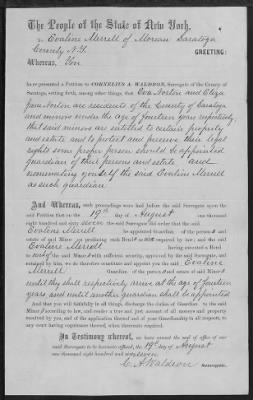 The People of the State of New York,
to Evaline Merrell of Moreau Saratoga
County N.Y. GREETING:
Whereas, You
have presented a Petition to CORNELIUS A. WALDRON, Surrogate of the County of
Saratoga, setting forth, among other things, that Eva Norton and Eliza
Jane Norton are residents of the County of Saratoga
and minors under the age of fourteen years respectively,
that said minors are entitled to certain property
and estate and to protect and preserve their legal
rights some proper person should be appointed
guardian of their persons and estate and
nominating yourself the said Evaline Merrell
as such guardian
And Whereas, such proceedings were had before the said Surrogate upon the
said Petition that on the 19th day of August one thousand
eight hundred and sixty seven the said Surrogate did order that the said
Evaline Merrell be appointed Guardian of the person s and
estate of said Minor s on producing such Bond s as are required by law; and the said
Evaline Merrell having executed a Bond
to each of the said Minor s with sufficient security, approved by the said Surrogate, and
retained by him, we do therefore constitute and appoint you the said Evaline
Merrell Guardian of the person s and estate of said Minor s
until they shall respectively arrive at the age of fourteen
years, and until another guardian shall be appointed
And that you will faithfully in all things, discharge the duties of Guardian to the said
Minor s according to law, and render a true and just account of all moneys and property
received by you, and of the application thereof and of your Guardianship in all respects, to
any court having cognizance thereof, when thereunto required.
In Testimony whereof, we have caused the seal of office of our
said Surrogate to be hereunto affixed, the 19th day of August
one thousand eight hundred and sixty seven
C. A. Waldron Surrogate.